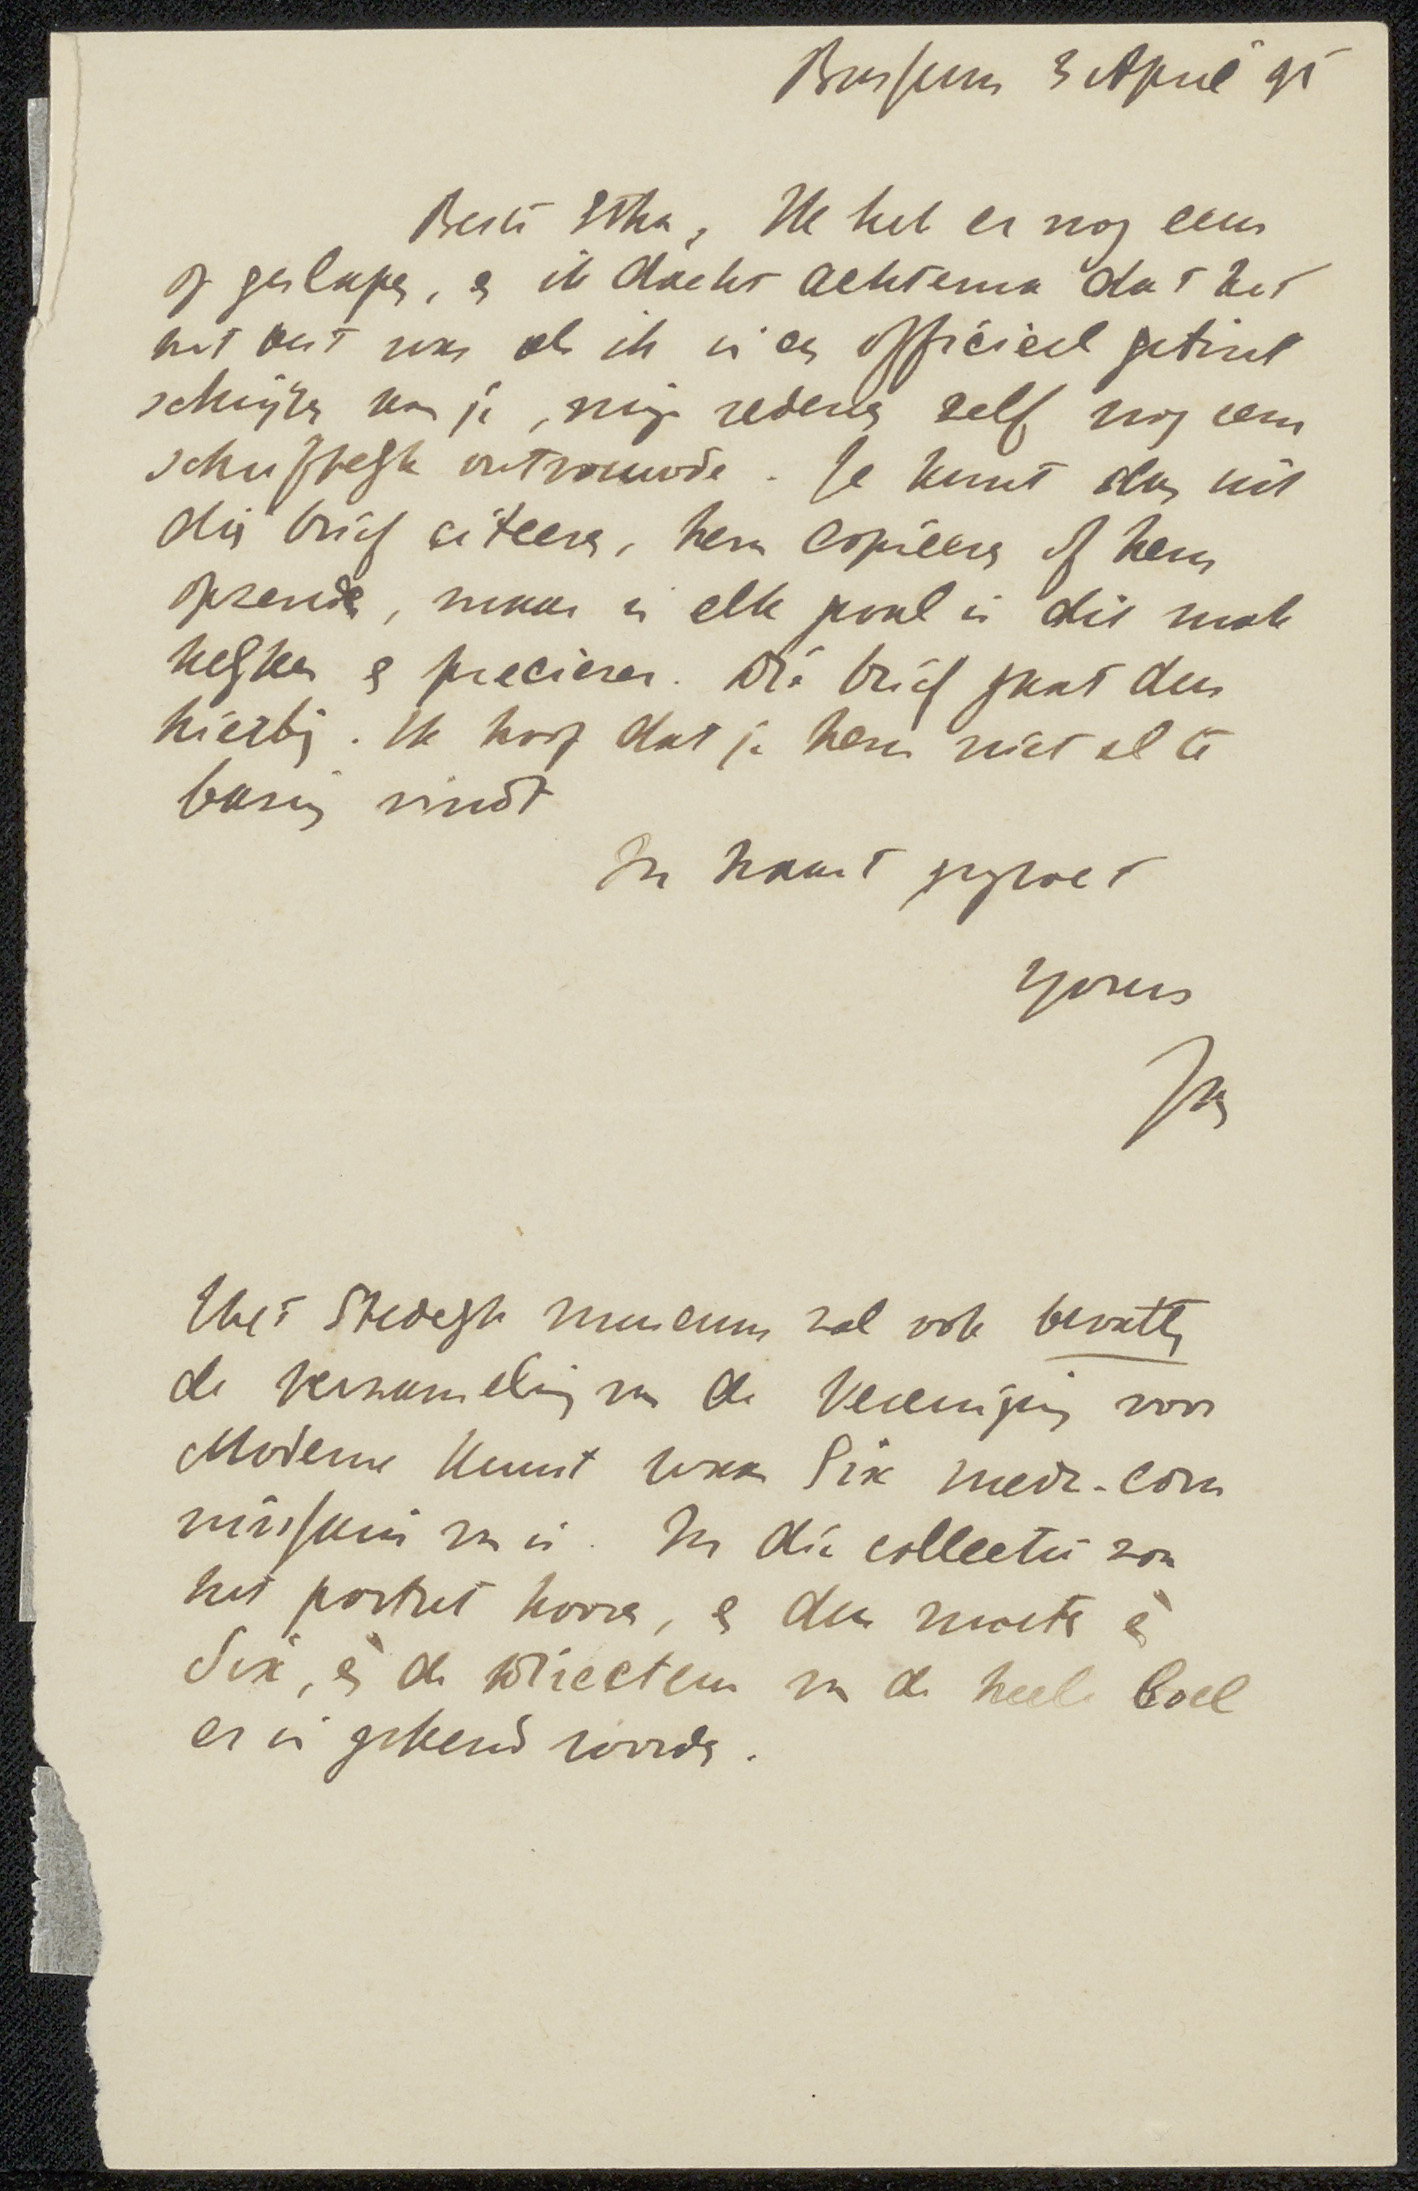 Bussum 3 April 95
Beste Etha, Ik heb er nog eens
op geslapen, en ik dacht achterna dat het
het best was als ik in een officieel getint
schrijven aan je, mijn redenen zelf nog eens
schriftelijk ontvouwde. Je kunt dan uit
die brief citeeren, hem copieeren of hem
opzenden, maar in elk geval is dit mak
kelijker en preciezer. Die brief gaat dus
hierbij. Ik hoop dat je hem niet al te
bazig vindt
In haast gegroet
yours
Jan
Het Stedelijk museum zal ook bevatten
de verzameling van de Vereeniging voor
Moderne Kunst waar Six mede-com
missaris van is. In die collectie zou
het portret hooren, en dus moeten èn
Six, èn de directeur van de heele boel
er in gekend worden.